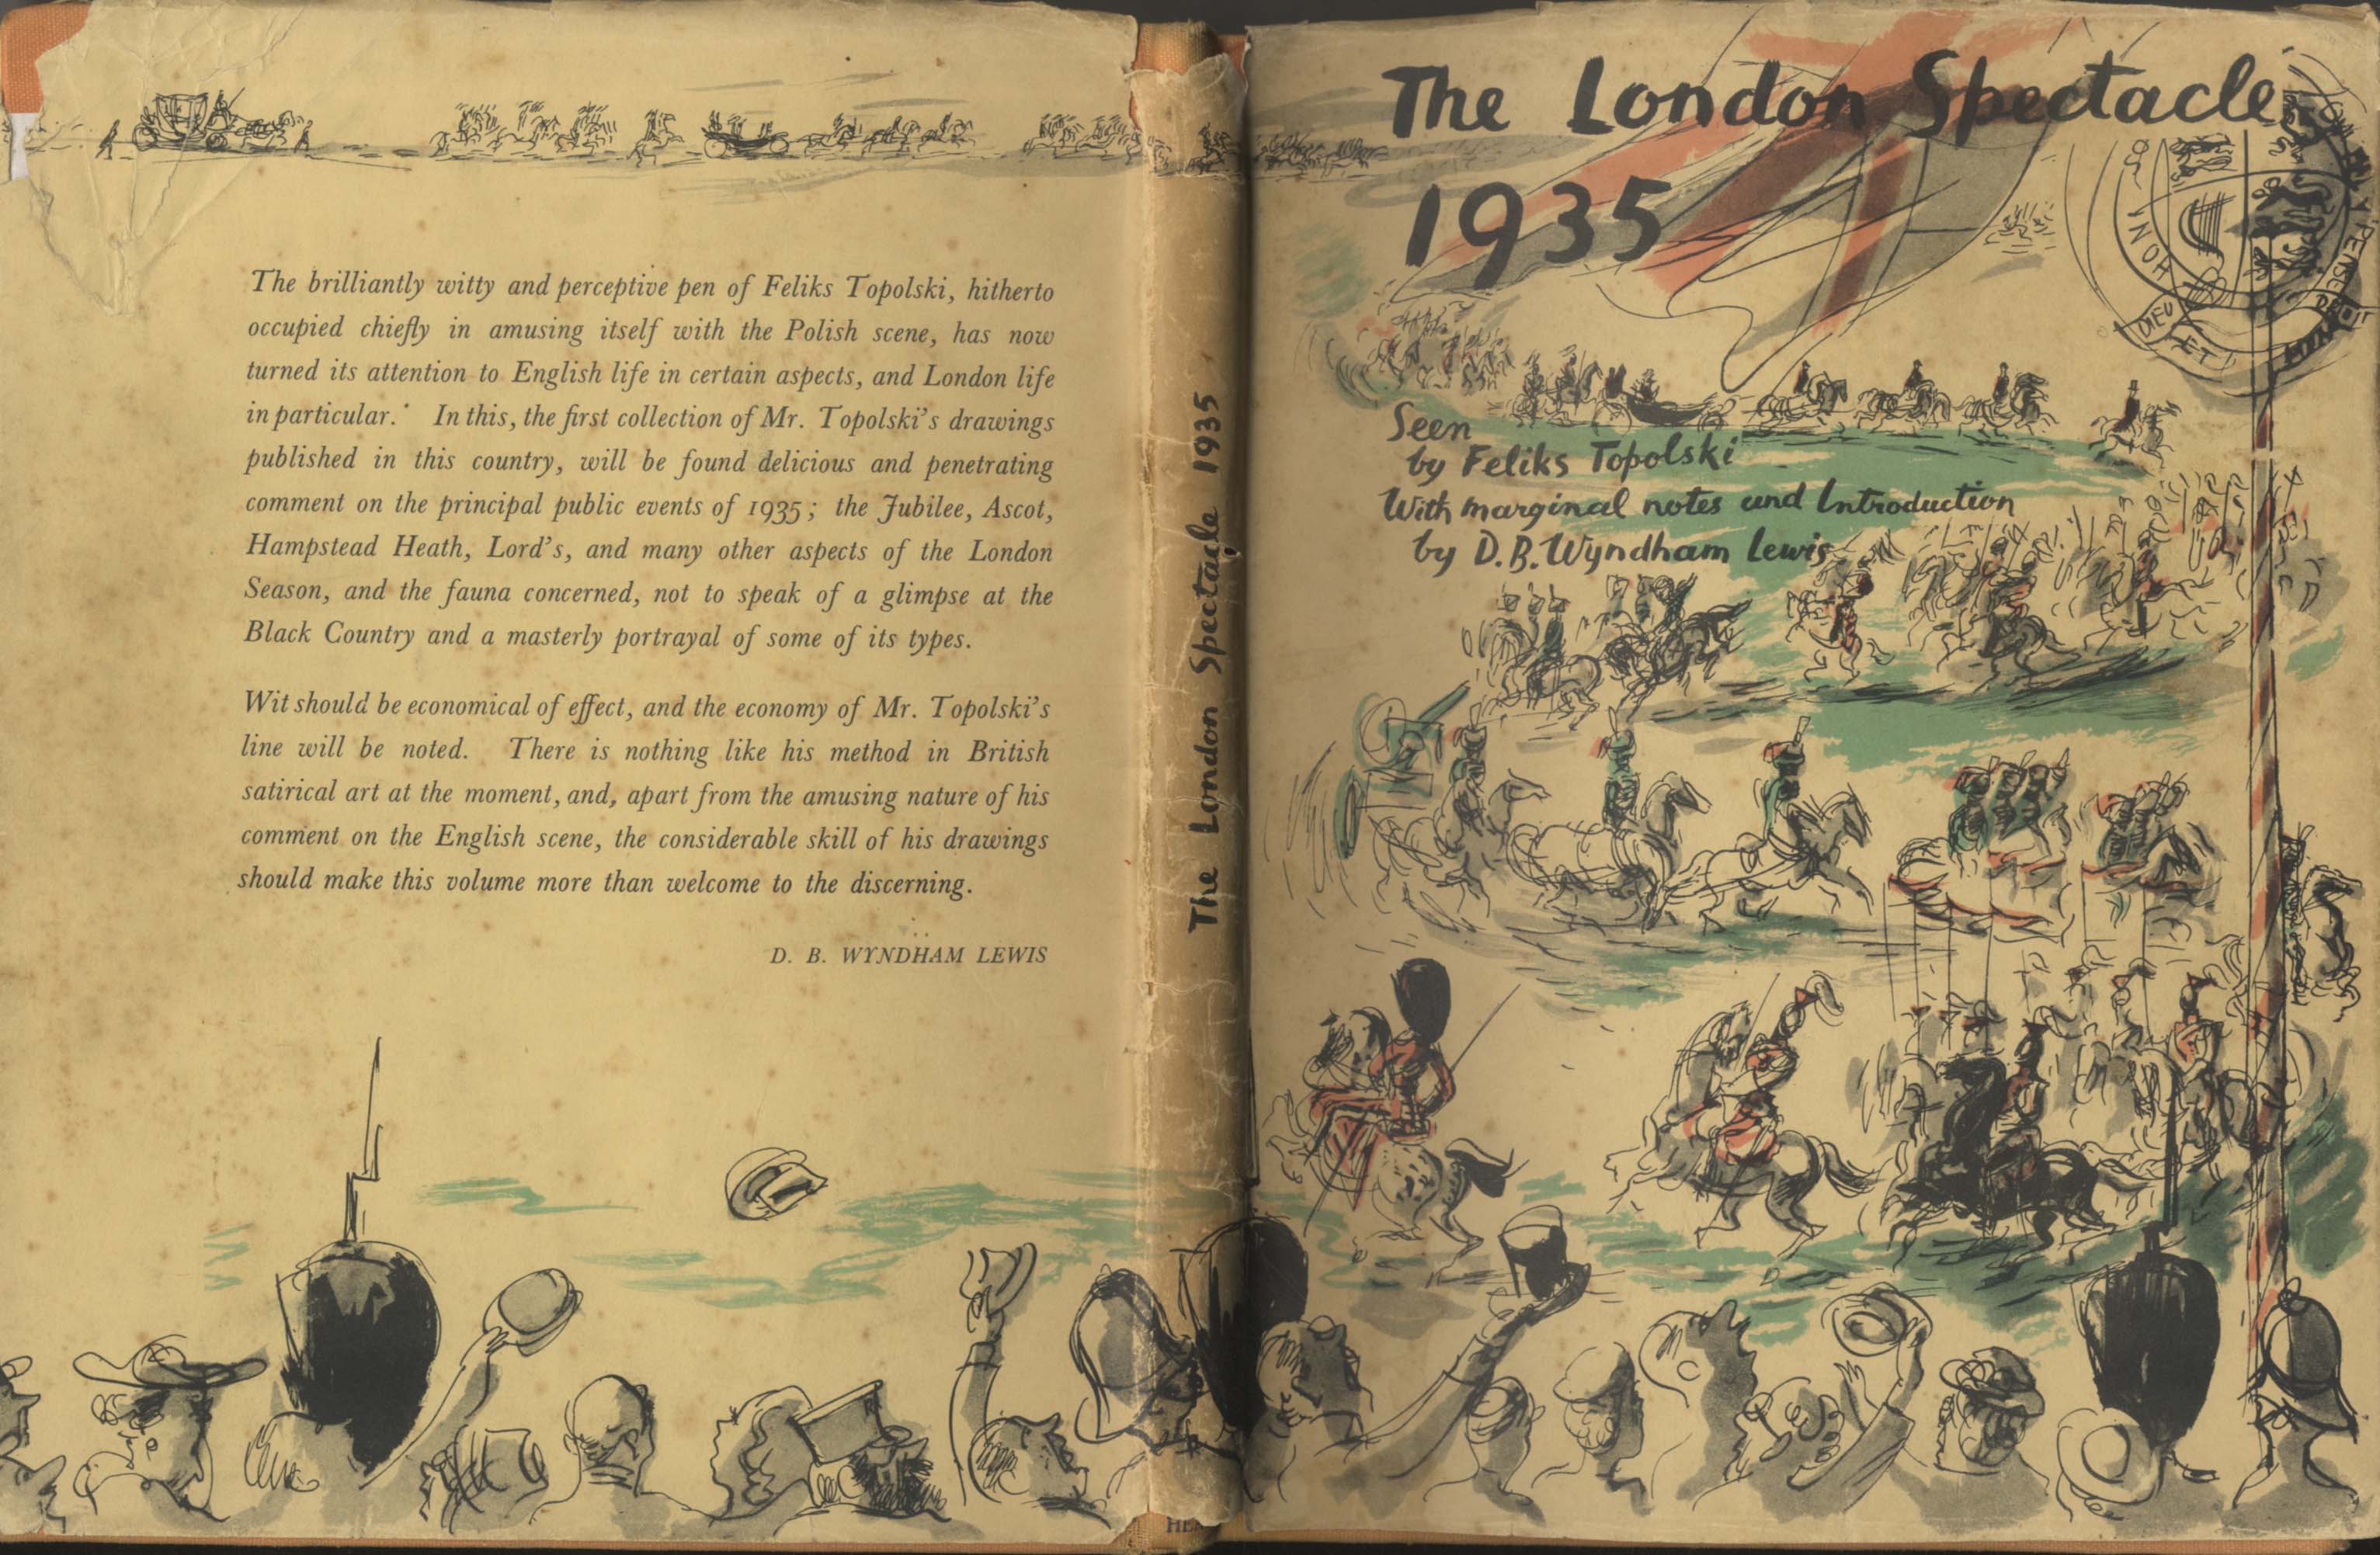 The brilliantly witty and perceptive pen of Feliks Topolski, hitherto
occupied chiefly in amusing itself with the Polish scene, has now
turned its attention to English life in certain aspects, and London life
in particular. In this, the first collection of Mr. Topolski's drawings
published in this country, will be found delicious and penetrating
comment on the principal public events of 1935; the Jubilee, Ascot,
Hampstead Heath, Lord's, and many other aspects of the London
Season, and the fauna concerned, not to speak of a glimpse at the
Black Country and a masterly portrayal of some of its types.
Wit should be economical of effect, and the economy of Mr. Topolski's
line will be noted. There is nothing like his method in British
satirical art at the moment, and, apart from the amusing nature of his
comment on the English scene, the considerable skill of his drawings
should make this volume more than welcome to the discerning.
D. B. WYNDHAM LEWIS
The London Spectacle 1935
The London Spectacle
1935
Seen
by Feliks Topolski
With marginal notes and Introduction
by D.B. Wyndham Lewis
HONI
DIEU
ET